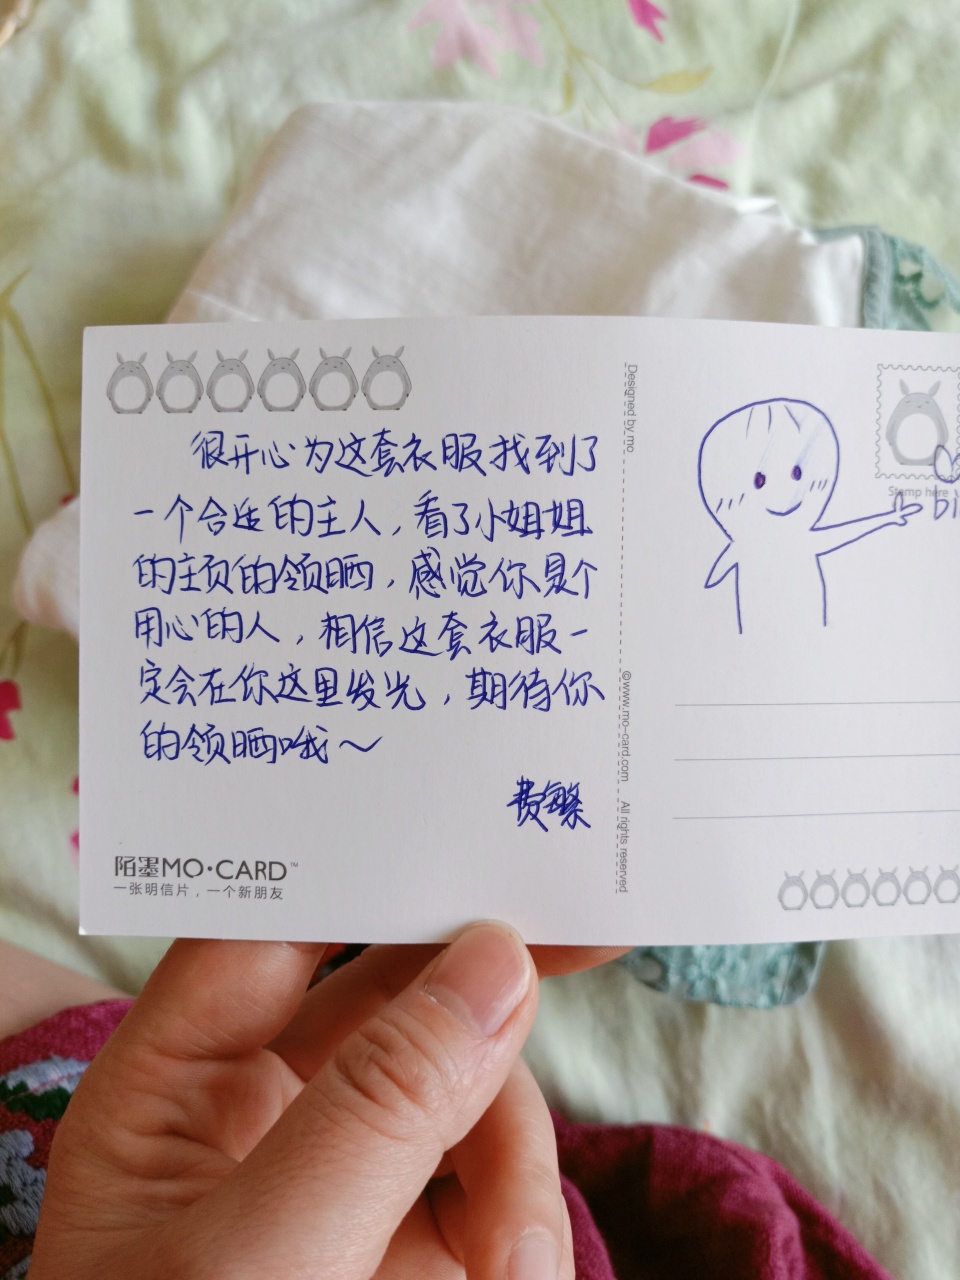 很开心为这套衣服找到了
一个合适的主人，看了小姐姐
的主页的领晒，感觉你是个
用心的人，相信这套衣服一
定会在你这里发光，期待你
的领晒哦～
陌墨MO·CARD™
一张明信片，一个新朋友
Designed by mo
©www.mo-card.com All rights reserved
Stamp here
bi